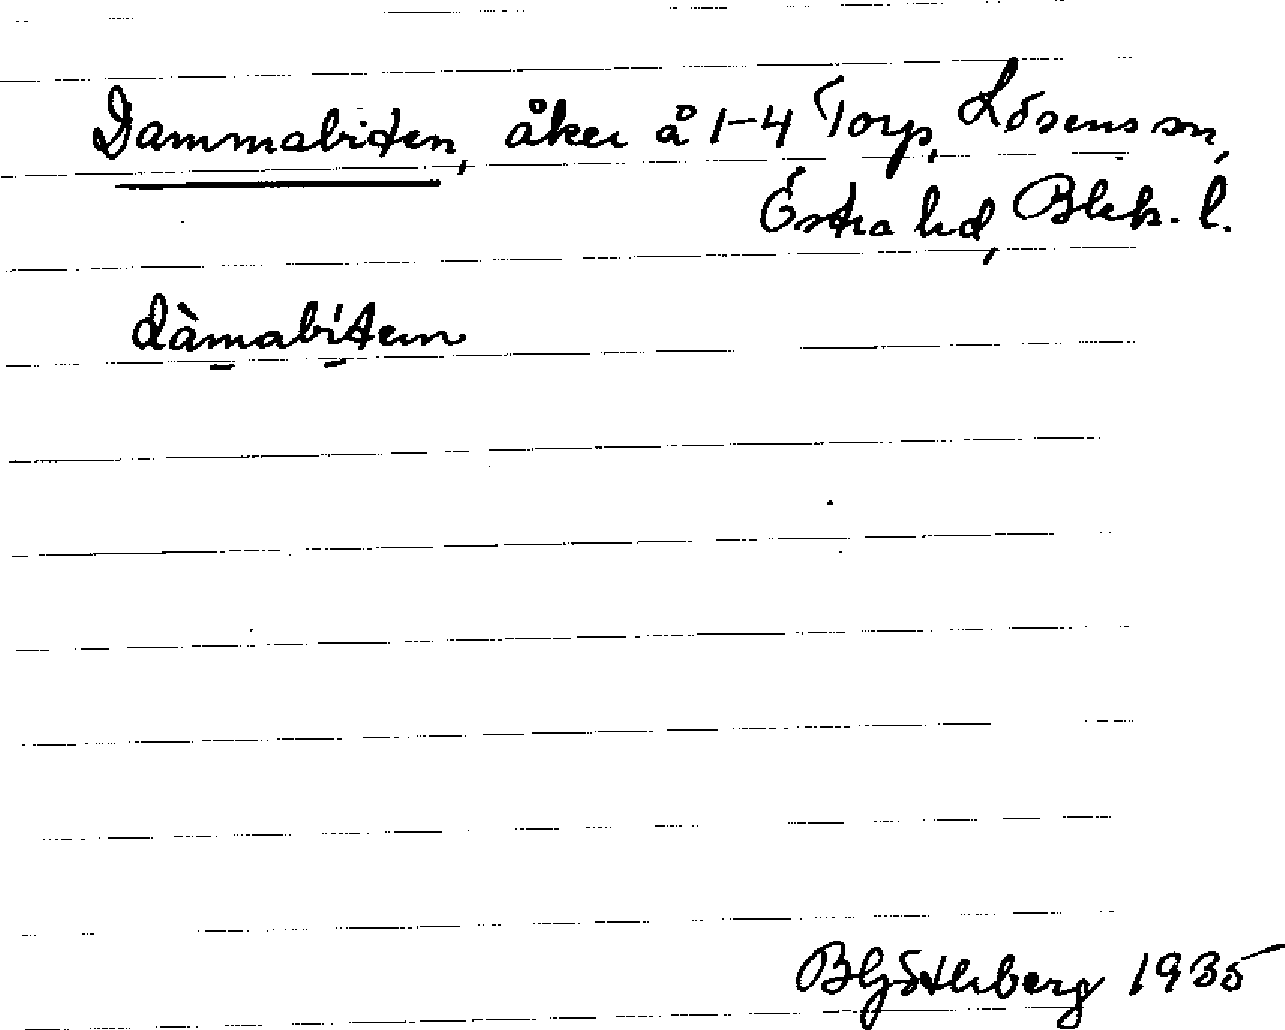 Dammabiten, åker å 1-4 Torp, Lösens sn,
Östra hd, Blek. l.
dàmabítẹn
BGötheberg 1935